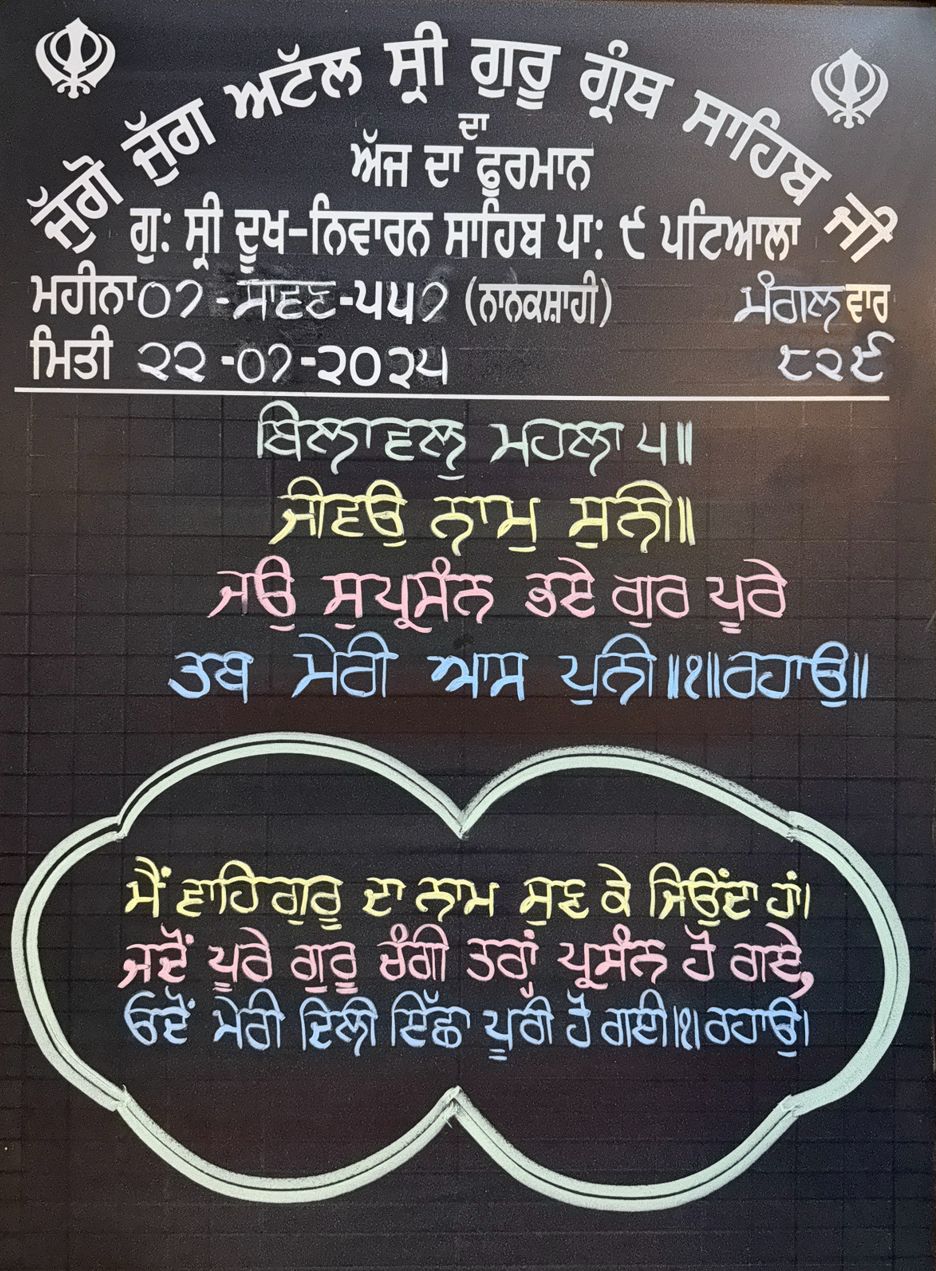 ਜੁੱਗੋ ਜੁੱਗ ਅਟੱਲ ਸ੍ਰੀ ਗੁਰੂ ਗ੍ਰੰਥ ਸਾਹਿਬ ਜੀ
ਦਾ
ਅੱਜ ਦਾ ਫੁਰਮਾਨ
ਗੁ: ਸ੍ਰੀ ਦੂਖ-ਨਿਵਾਰਨ ਸਾਹਿਬ ਪਾ: ੯ ਪਟਿਆਲਾ
ਮਹੀਨਾ ੦੭ - ਸਾਵਣ -੫੫੭ (ਨਾਨਕਸ਼ਾਹੀ) ਮੰਗਲਵਾਰ
ਮਿਤੀ ੨੨ -੦੭ -੨੦੨੫ ੮੨੯
ਬਿਲਾਵਲੁ ਮਹਲਾ ੫॥
ਜੀਵਉ ਨਾਮੁ ਸੁਨੀ॥
ਜਉ ਸੁਪ੍ਰਸੰਨ ਭਏ ਗੁਰ ਪੂਰੇ
ਤਬ ਮੇਰੀ ਆਸ ਪੁਨੀ॥੧॥ਰਹਾਉ॥
ਮੈਂ ਵਾਹਿਗੁਰੂ ਦਾ ਨਾਮ ਸੁਣ ਕੇ ਜਿਉਂਦਾ ਹਾਂ।
ਜਦੋਂ ਪੂਰੇ ਗੁਰੂ ਚੰਗੀ ਤਰ੍ਹਾਂ ਪ੍ਰਸੰਨ ਹੋ ਗਏ,
ਓਦੋਂ ਮੇਰੀ ਦਿਲੀ ਇੱਛਾ ਪੂਰੀ ਹੋ ਗਈ।੧।ਰਹਾਉ।